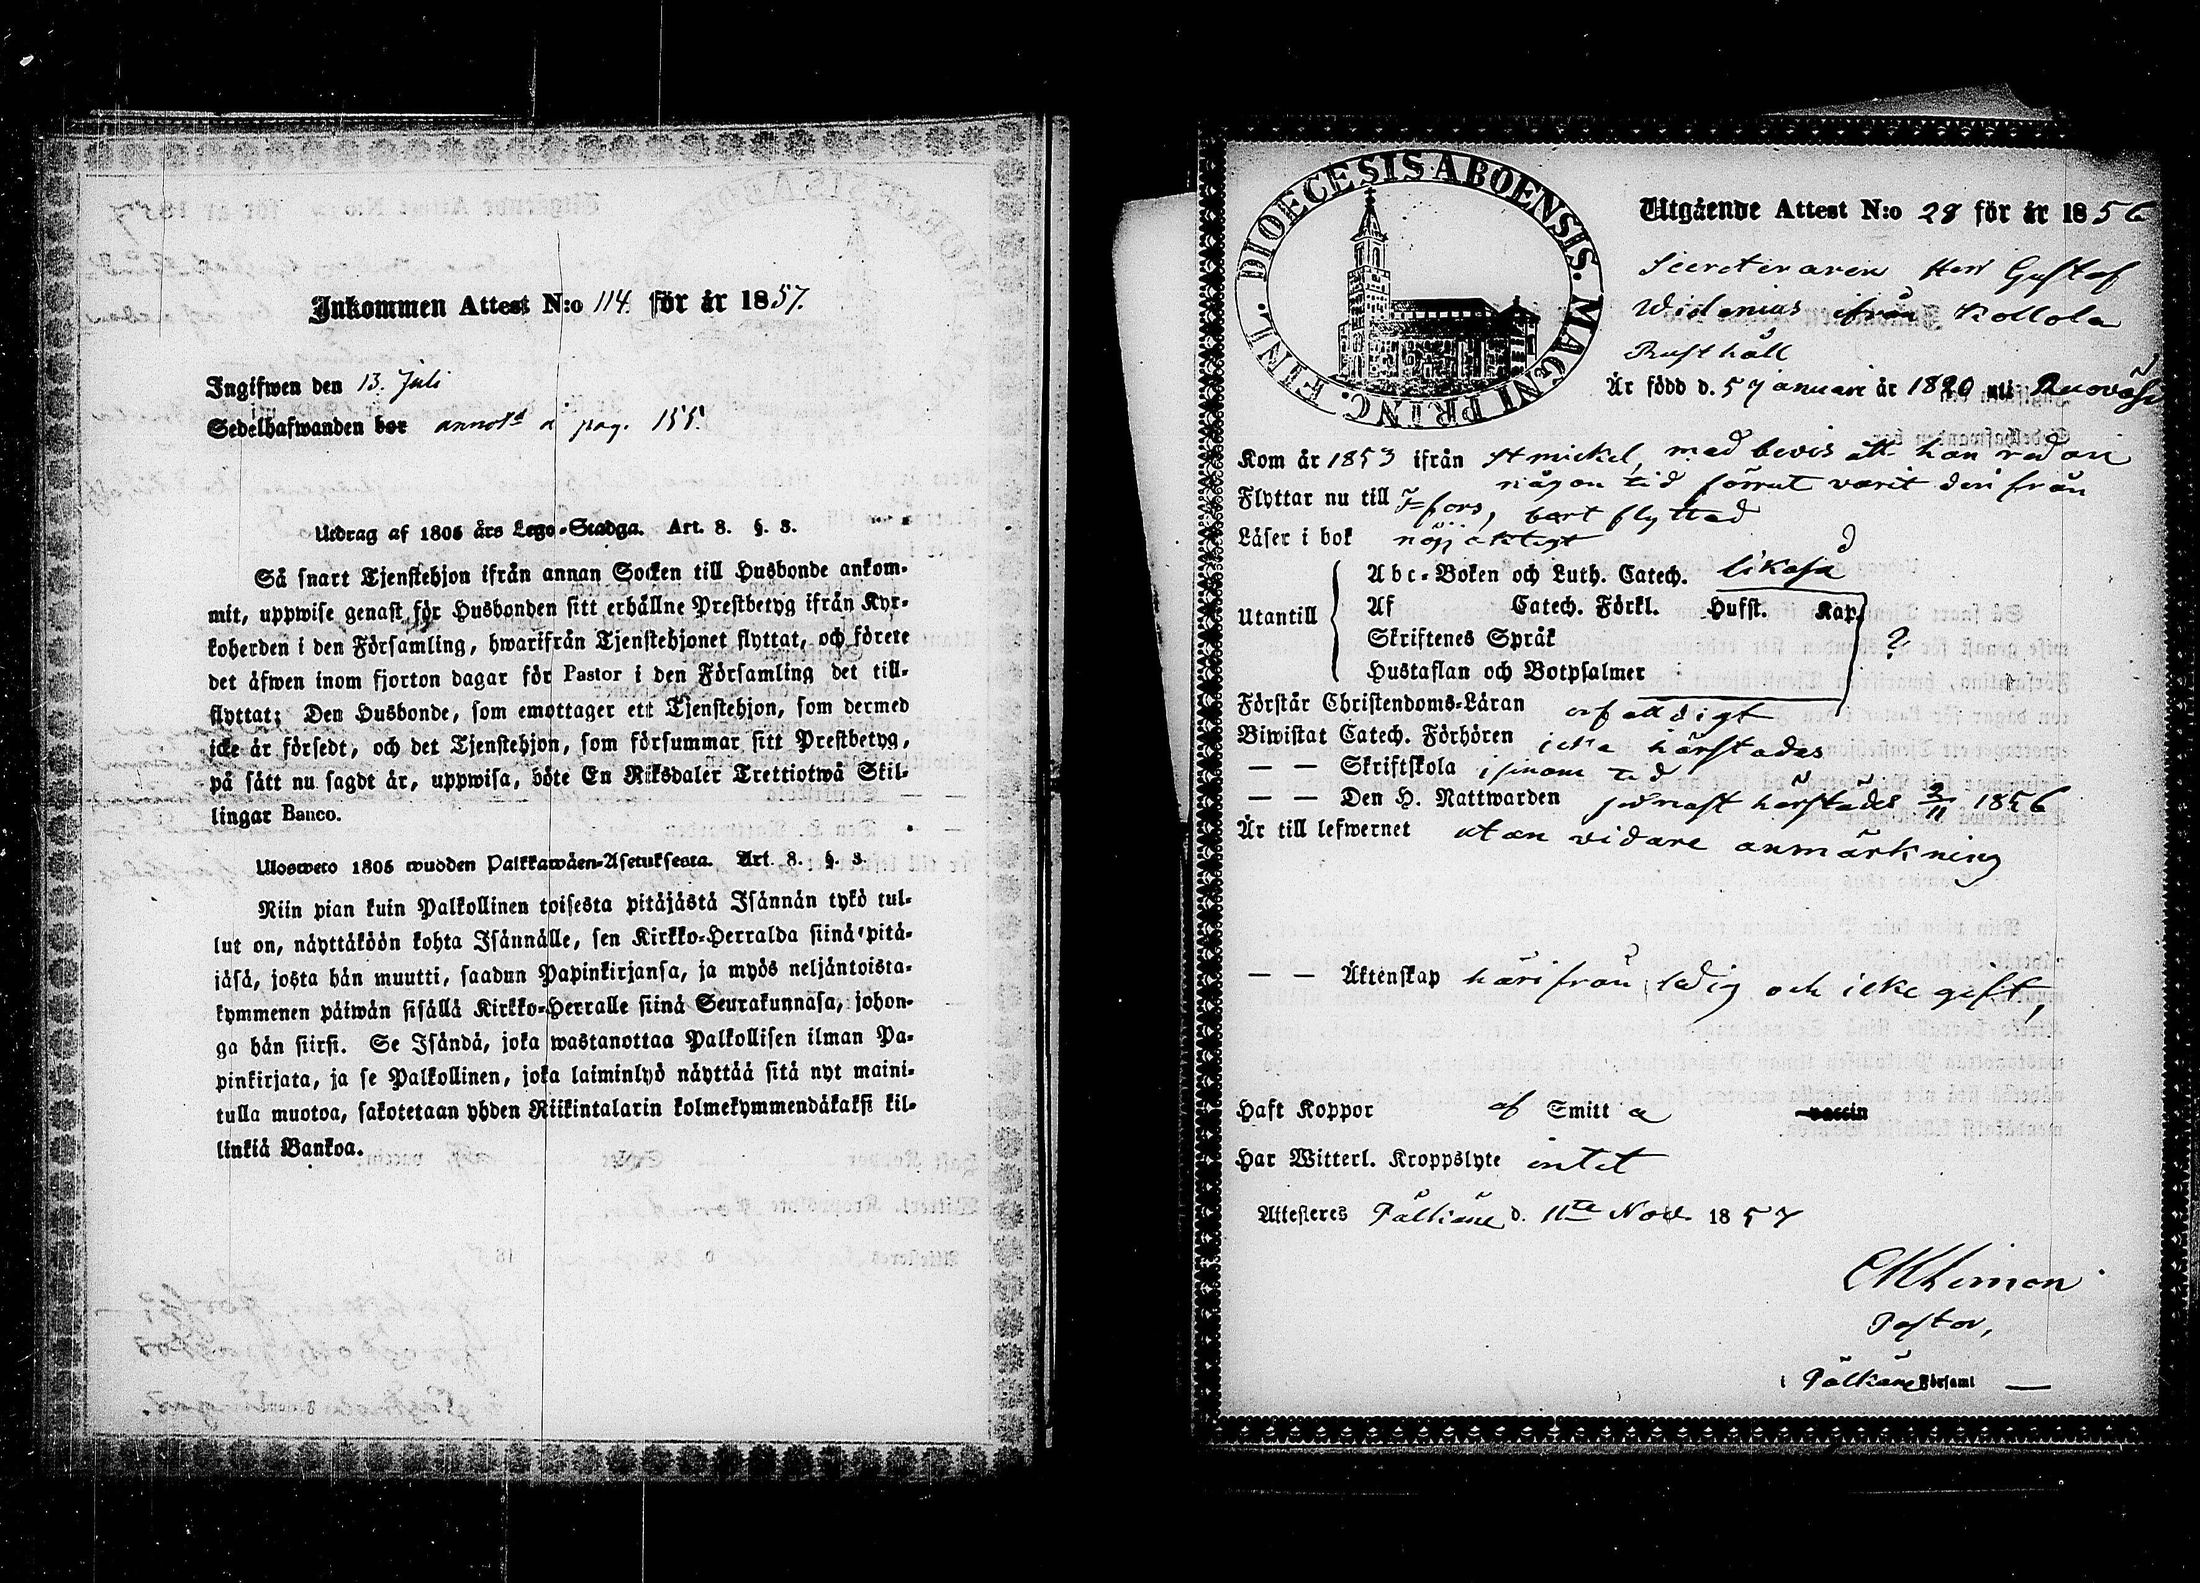 Inkommen Attest N:o 114. för år 1857.
Ingifwen den 13. Juli
Sedelhafwanden bor annot:d a pag. 155.
Utdrag af 1805 års Lego-Stadga. Art. 8. §. 3.
Så snart Tjenstehjon ifrån annan Socken till Husbonde ankom-
mit, uppwise genast för Husbonden sitt erhållne Prestbetyg ifrån Kyr-
koherden i den Församling, hwarifrån Tjenstehjonet flyttat, och förete
det äfwen inom fjorton dagar för Pastor i den Församling det till-
flyttat; Den Husbonde, som emottager ett Tjenstehjon, som dermed
icke är försedt, och det Tjenstehjon, som försummar sitt Prestbetyg,
på sätt nu sagdt är, uppwisa, böte En Riksdaler Trettiotwå Skil-
lingar Banco.
Ulosweto 1805 wuoden Palkkawäen-Asetuksesta. Art. 8. §. 3.
Niin pian kuin Palkollinen toisesta pitäjästä Isännän tykö tul-
lut on, näyttäköön kohta Isännälle, sen Kirkko-Herralda siinä pitä-
jäsä, josta hän muutti, saadun Papinkirjansa, ja myös neljäntoista-
kymmenen päiwän sisällä Kirkko-Herralle siinä Seurakunnasa, johon-
ga hän siirsi. Se Isändä, joka wastanottaa Palkollisen ilman Pa-
pinkirjata, ja se Palkollinen, joka laiminlyö näyttää sitä nyt maini-
tulla muotoa, sakotetaan yhden Riikintalarin kolmekymmendäkaksi kil-
linkiä Bankoa.
DIOECESIS ABOENSIS. MAGNI PRINC. FINL.
Utgående Attest N:o 28 för år 1856
Secreteraren Herr Gustaf
Widenius ifrån Kollola
Rusthåll
Är född d. 5 januari år 1820 uti Ruovesi
Kom år 1853 ifrån St mickel, med bevis att han redan
någon tid förrut varit derifrån
Flyttar nu till H-fors, bort flyttad
Läser i bok nöjaktigt
Utantill
Abc-Boken och Luth. Catech. likaså
Af Catech. Förkl. Hufst. Kap.
Skriftenes Språk ?
Hustaflan och Botpsalmer
Förstår Christendoms-Läran
Biwistat Catech. Förhören icke härstädes
— — Skriftskola i sinom tid
— — Den H. Nattwarden sednast härstädes 2/11 1856
Är till lefwernet utan vidare anmärkning
— — Äktenskap härifrån ledig och icke gift,
Haft Koppor af Smitt a vaccin
Har Witterl. Kroppslyte intet
Attesteres Pälkäne d. 11te Nov. 1857
Pastor,
i Pälkäne Församl